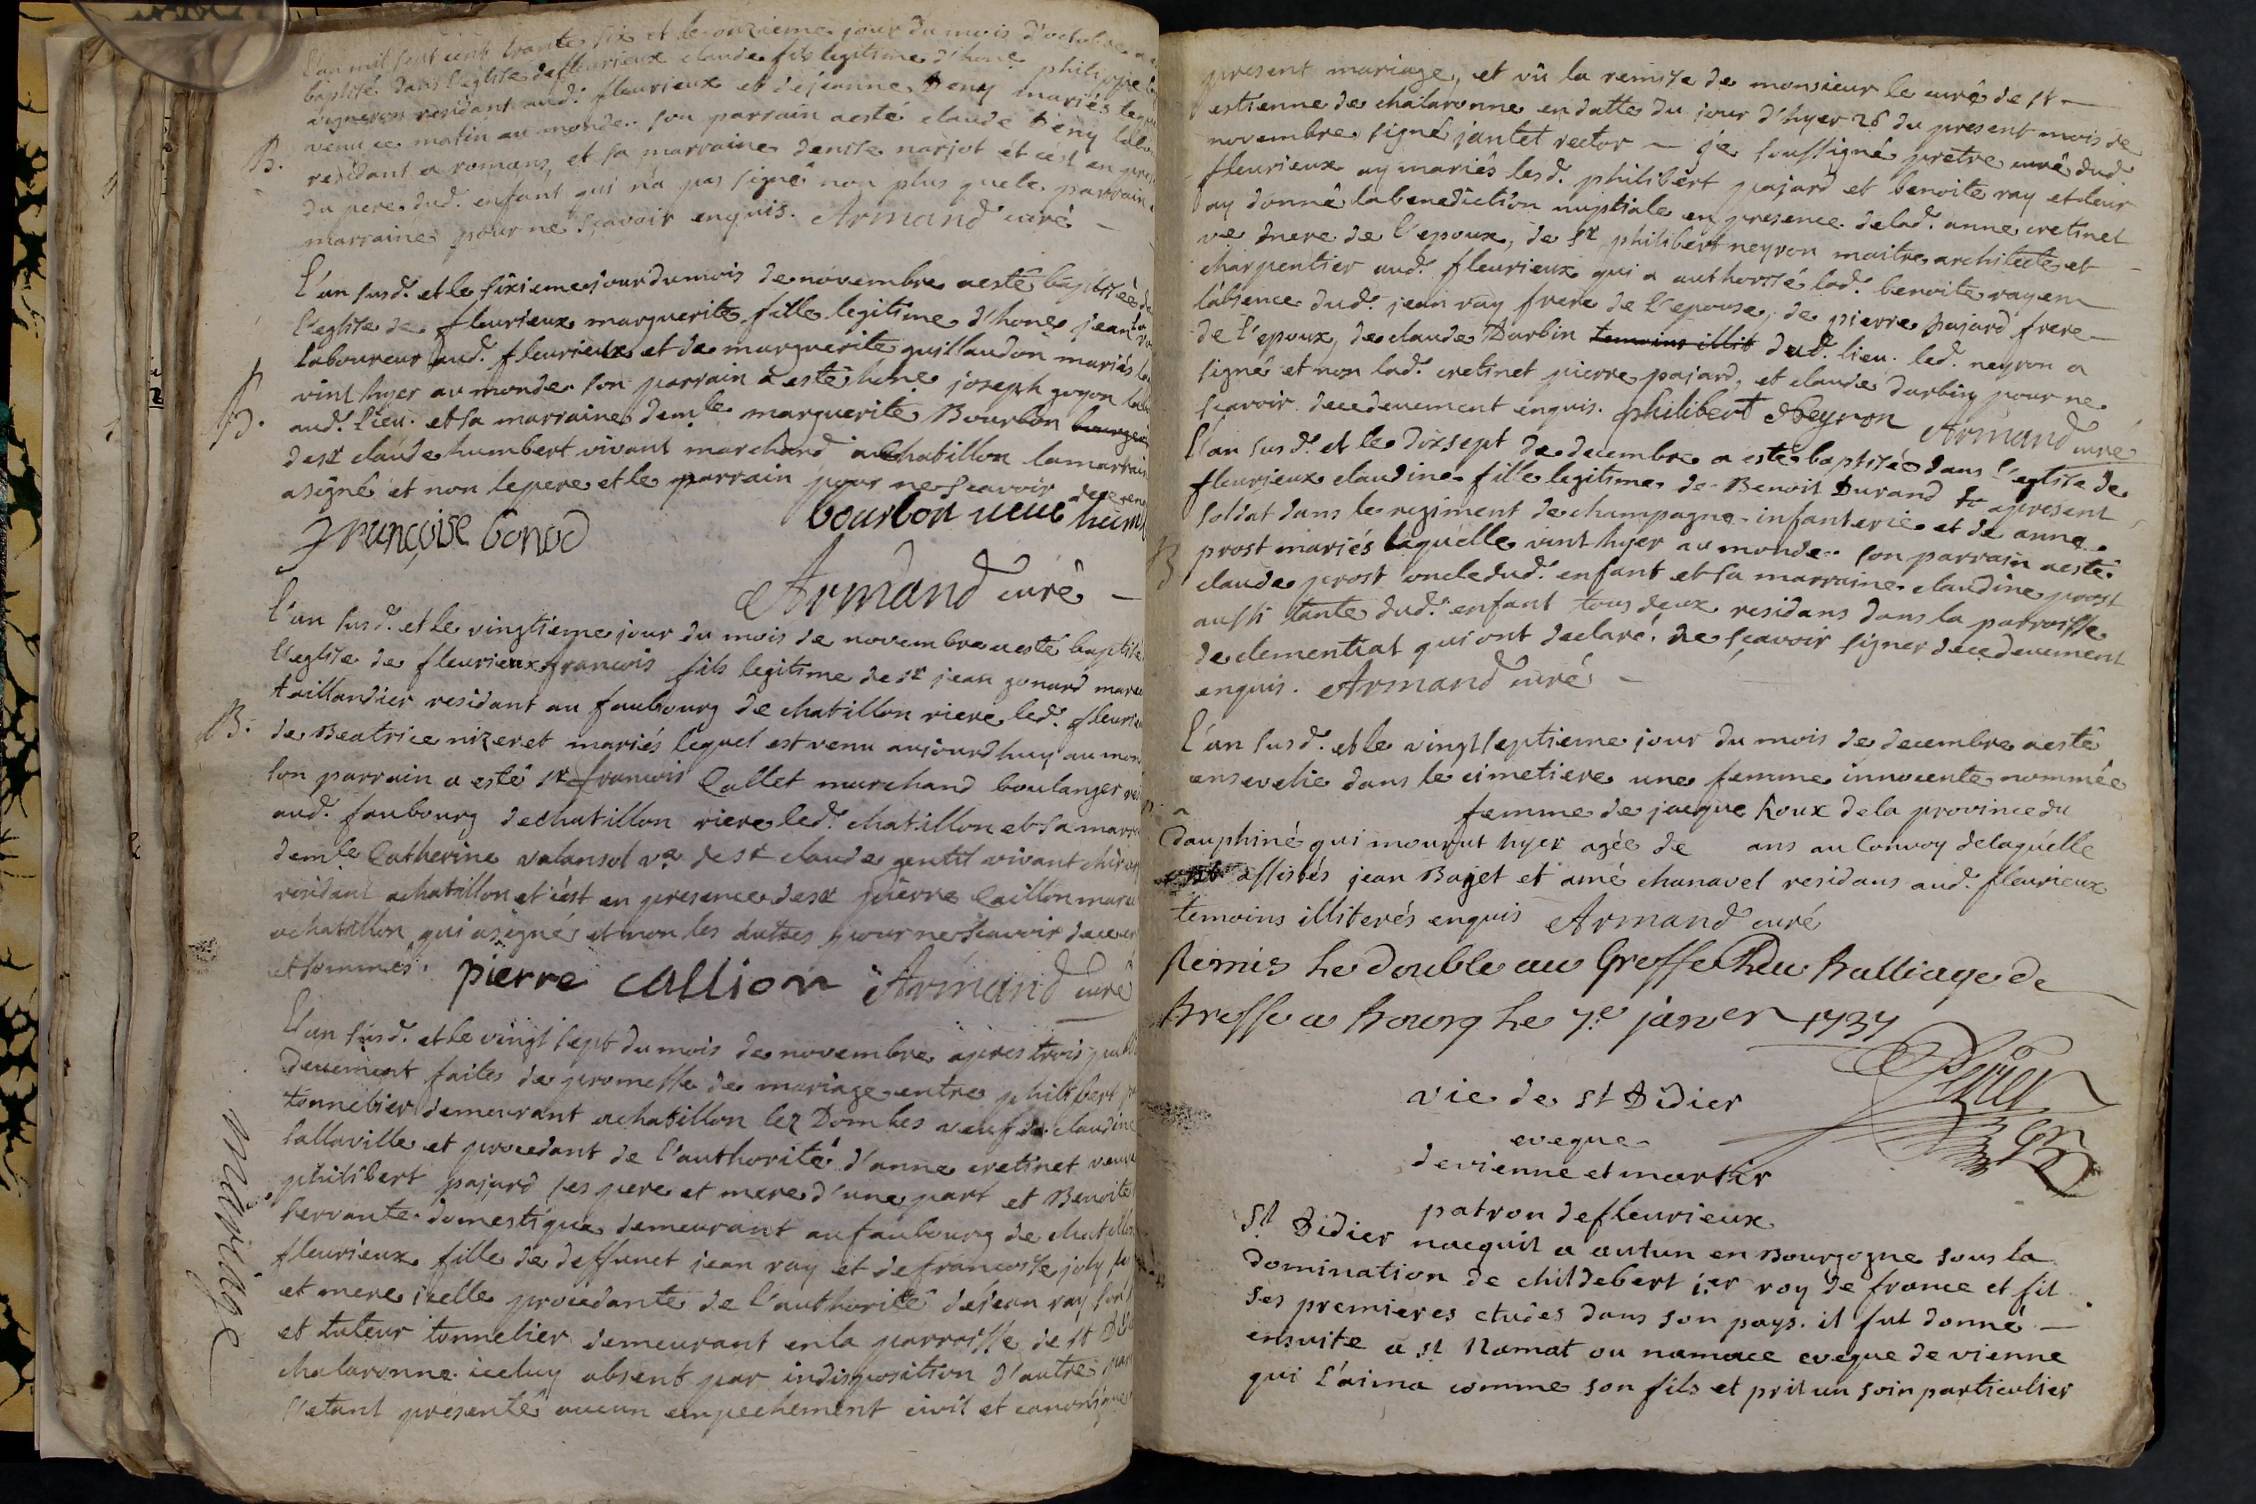 L'an mil sept cent trante six et le onzieme jour du mois d'octobre a
baptisé dans l'eglise de fleurieux claude fils legitime d'hone philippe
vigneron residant aud. fleurieux et de jeanne Deny mariés lequel
venu ce matin au monde. son parrain a esté claude Deny labou
B.
residant a romans, et sa marraine denise narjot et c'est en prese
du pere dud. enfant qui n'a pas signé non plus que le parrain e
marraine pour ne sçavoir enquis. Armand curé
L'an susd. et le sixieme jour du mois de novembre a esté baptisée da
l'eglise de fleurieux marguerite fille legitime d'hone jean
laboureur aud. fleurieux et de marguerite guillaudon mariés la
vint hyer au monde. son parrain a esté hone joseph goyon lab
B.
aud. lieu. et sa marraine demle marguerite Bourbon bourgeoi
de sr claude humbert vivant marchand a Chatillon la marrain
a signé et non le pere et le parrain pour ne sçavoir
françoise Gonod
bourbon veuve hum
Armand curé
L'an susd. et le vingtieme jour du mois de novembre a esté baptisé
l'eglise de fleurieux francois fils legitime de sr jean gonard mare
taillandier residant au faubourg de chatillon riere led. fleurie
B.
de Beatrice nizeret mariés lequel est venu aujourdhuy au mon
son parrain a esté sr francois Callet marchand boulanger re
aud. faubourg de chatillon riere led. chatillon et sa marra
demle Catherine valansol ve de sr claude gentil vivant chirur
residant a chatillon et c'est en presence de sr pierre Caillon marc
a chatillon qui a signé et non les autres pour ne sçavoir
et sommés. pierre callion Armand curé
L'an susd. et le vingt sept du mois de novembre apres trois publi
deuement faites de promesse de mariage entre philibert
tonnelier demeurant a chatillon lez Dombes veuf de claudine
lallaville et procedant de l'authorité d'anne cretinet veuve
philibert pajard ses pere et mere d'une part et Benoite
servante domestique demeurant au faubourg de chatillon
mariage
fleurieux fille de deffunct jean ray et de francoise joly
et mere icelle procedante de l'authorité de jean ray son
et tuteur tonnelier demeurant en la parroisse de st
chalaronne iceluy absent par indisposition d'autre part
s'etant presenté aucun empechement civil et canonique
present mariage, et vû la remise de monsieur le curé de st
estienne de chalaronne en datte du jour d'hyer 26 du present mois de
novembre signé jantet rector — je soussigné pretre curé dud.
fleurieux ay mariés lesd. philibert pajard et benoite ray et leur
ay donné la benediction nuptiale en presence de lad. anne cretinet
ve mere de l'epoux, de sr philibert neyron maitre architecte et
charpentier aud. fleurieux qui a authorisé lad. benoite ray en
l'absence dud. jean ray frere de l'epouse, de pierre pajard frere
de l'epoux, de claude Darbin temoins illit dud. lieu. led. neyron a
signé et non lad. cretinet pierre pajard, et claude darbin pour ne
sçavoir de ce deuement enquis. philibert Neyron Armand curé
L'an susd. et le dixsept de decembre a esté baptisée dans l'eglise de
fleurieux claudine fille legitime de Benoit Durand a present
soldat dans le regiment de champagne infanterie et de anne
B
prost mariés laquelle vint hyer au monde. son parrain a esté
claude prost oncle dud. enfant et sa marraine claudine prost
aussi tante dud. enfant tous deux residans dans la parroisse
de clementiat qui ont declaré ne sçavoir signer de ce deuement
enquis. Armand curé
L'an susd. et le vingtseptieme jour du mois de decembre a esté
ensevelie dans le cimetiere une femme innocente nommée
femme de jacque Roux de la province du
Dauphiné qui mourut hyer agée de ans au Convoy de laquelle
assistés jean Bajet et aimé chanavel residans aud. fleurieux
temoins illiterés enquis Armand curé
Remis Le double au Greffe du Balliage de
Bresse a Bourg Le 7e janver 1737
vie de st Didier
eveque
de vienne et martir
patron de fleurieux
St Didier nacquit a autun en Bourgogne sous la
domination de childebert ier roy de france et fit
ses premieres etudes dans son pays. il fut donné
ensuite a st Namat ou namace eveque de vienne
qui l'aima comme son fils et prit un soin particulier